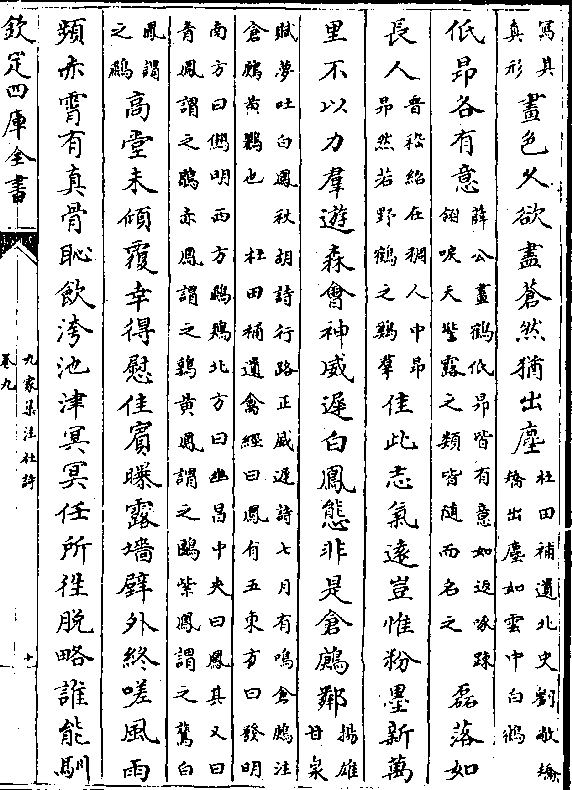 寫其
真形
畫色久欲盡蒼然猶出塵
杜田補遺北史劉歊矯
矯出塵如雲中白鶴
低昂各有意
薛公畫鶴低昂皆有意如返啄踈
翎唳天警露之類皆隨而名之
磊落如
長人
晉嵇紹在稠人中昂
昂然若野鶴之鷄羣
佳此志氣遠豈惟粉墨新萬
里不以力羣遊森會神威遲白鳳態非是倉鶊鄰
揚雄
甘泉
賦夢吐白鳳秋胡詩行路正威遲詩七月有鳴倉鶊注
倉鶊黄鸝也 杜田補遺禽經曰鳳有五東方曰發明
南方曰鷦明西方鸕鷞北方曰幽昌中央曰鳳其又曰
青鳳謂之鶡赤鳳謂之鶉黄鳳謂之 紫鳳謂之鷟白
鳳謂
之鷫
高堂未傾覆幸得慰佳賓曝露墻壁外終嗟風雨
頻赤霄有真骨恥飲洿池津冥冥任所徃脱略誰能馴
欽定四庫全書
九家集注杜詩
卷九
十